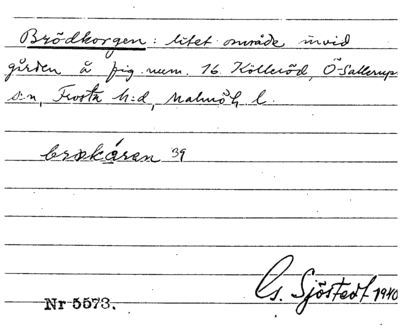 Brödkorgen: litet område invid
gården å fig. num. 16 Kölleröd, Ö-Sallerups
s:n, Frosta h:d, Malmöh. l.
39
Nr 5573.
G. Sjöstedt 1940